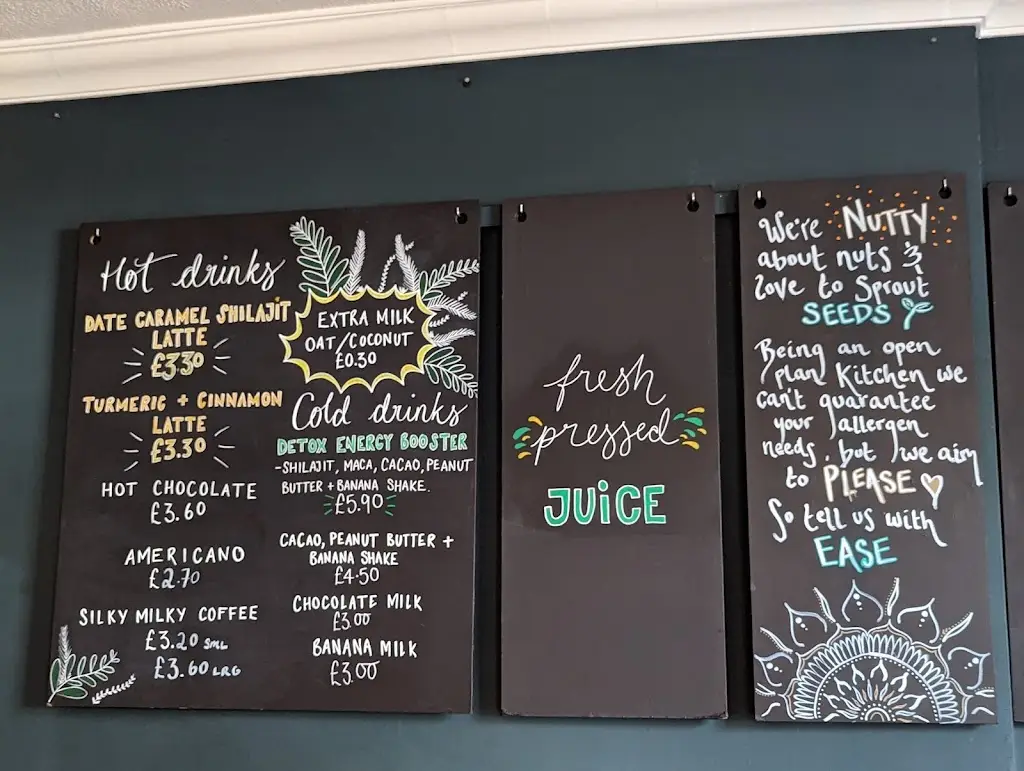 Hot drinks
DATE CARAMEL SHILAJIT
LATTE
£3.30
TURMERIC + CINNAMON
LATTE
£3.30
HOT CHOCOLATE
£3.60
AMERICANO
£2.70
SILKY MILKY COFFEE
£3.20 SML
£3.60 LRG
EXTRA MILK
OAT/COCONUT
£0.30
Cold drinks
DETOX ENERGY BOOSTER
-SHILAJIT, MACA, CACAO, PEANUT
BUTTER + BANANA SHAKE.
£5.90
CACAO, PEANUT BUTTER +
BANANA SHAKE
£4.50
CHOCOLATE MILK
£3.00
BANANA MILK
£3.00
fresh
pressed
JUiCE
We're NUTTY
about nuts &
love to Sprout
SEEDS
Being an open
plan Kitchen we
can't guarantee
your allergen
needs, but we aim
to PLEASE
So tell us with
EASE